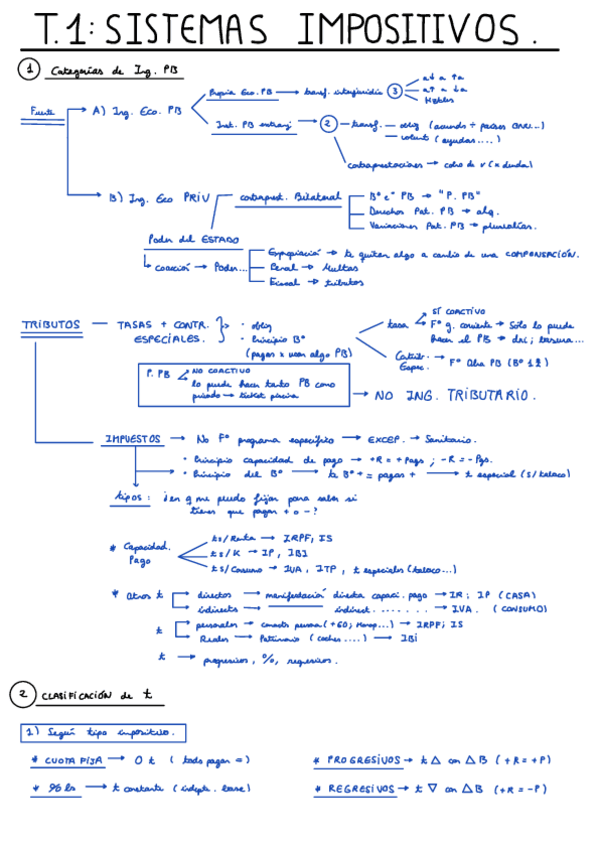 T.1: SISTEMAS IMPOSITIVOS.
1 Categorías de Ing. PB
Fuente
A) Ing. Eco. PB
Propia Eco. PB → transf. interjurisdic 3
n↓ a ↑n
n↑ a ↓n
Inst. PB extranj → 2 → transf.
oblig (acuerdo + países
volunt (ayudas....)
contraprestaciones → cobro de v (x deuda)
B) Ing. Eco PRIV
contraprest. Bilateral
Bº eº PB → "P. PB"
Derechos Pat. PB → alq.
Variaciones Pat. PB → plusvalías.
Poder del ESTADO
coacción → Poder...
Expropiación → te quitan algo a cambio de una COMPENSACIÓN.
Penal → Multas
Fiscal → tributos
TRIBUTOS — TASAS + CONTR. ESPECIALES.
· oblig
· Principio Bº
(pagas x usar algo PB)
tasa
SÍ COACTIVO
Fº g. corriente → Sólo lo puede hacer el PB → dni; basura...
Contrib. Espec. → Fº Obra PB (Bº
P. PB
NO COACTIVO
lo puede hacer tanto PB como privado → ticket piscina
→ NO ING. TRIBUTARIO.
IMPUESTOS → No Fº programa específico → EXCEP. → Sanitario.
· Principio capacidad de pago → +R = + Pago ; -R = - Pgo.
· Principio del Bº → te Bº + = pagas + → t especial (s/ tabaco)
tipos: ¿en q me puedo fijar para saber si tienes que pagar + o -?
* Capacidad. Pago
ts/Renta → IRPF; IS
ts/K → IP, IBI
ts/Consumo → IVA, ITP, t especiales (tabaco...)
* Otros t
directos → manifestación directa capaci. pago → IR; IP (CASA)
indirectos → indirect. ....... → IVA. (CONSUMO)
t
personales → caract. persona (+60; Monop...) → IRPF; IS
Reales → Patrimonio (coches....) → IBI
t → progresivos, %, regresivos.
2 CLASIFICACIÓN de t
1) Según tipo impositivo.
* CUOTA FIJA → 0 t (todo pagan =)
* PROGRESIVOS → t △ con △B (+R = +P)
* %les → t constante (indepte. base)
* REGRESIVOS → t ▽ con △B (+R = -P)